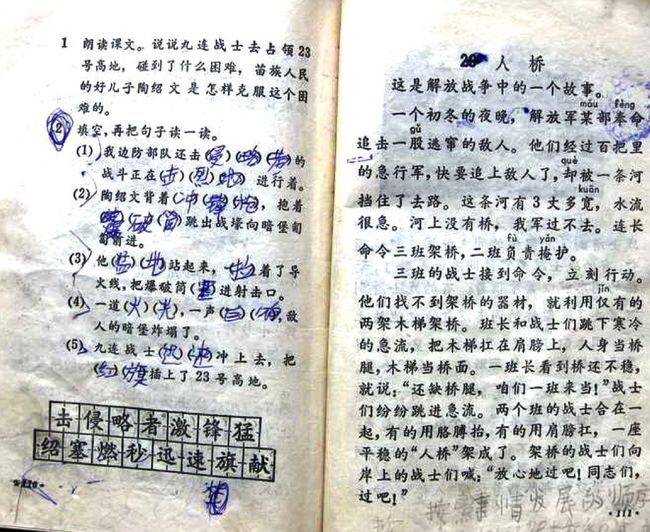 1 朗读课文。说说九连战士去占领23
号高地，碰到了什么困难，苗族人民
的好儿子陶绍文是怎样克服这个困
难的。
2 填空，再把句子读一读。
(1) 我边防部队还击(侵)(略)(者)的
战斗正在()(烈)(地) 进行着。
(2) 陶绍文背着(冲)(锋)(枪)，抱着
(爆)(破)(筒)跳出战壕向暗堡匍
匐前进。
(3) 他(猛)(地)站起来，()着了导
火线，把爆破筒(塞)进射击口。
(4) 一道(火)(光)，一声(巨)(响)，敌
人的暗堡炸塌了。
(5) 九连战士(迅)(速)冲上去，把
(红)(旗)插上了23号高地。
击侵略者激锋猛
绍塞燃秒迅速旗献
·110·
人桥
这是解放战争中的一个故事。
mǒu fèng
一个初冬的夜晚，解放军某部奉命
gǔ
追击一股逃窜的敌人。他们经过百把里
què
的急行军，快要追上敌人了，却被一条河
kuān
挡住了去路。这条河有3丈多宽，水流
很急。河上没有桥，我军过不去。连长
fù yǎn
命令三班架桥，二班负责掩护。
三班的战士接到命令，立刻行动。
jǐn
他们找不到架桥的器材，就利用仅有的
两架木梯架桥。班长和战士们跳下寒冷
的急流，把木梯扛在肩膀上，人身当桥
腿，木梯当桥面。一班长看到桥还不稳，
就说：“还缺桥腿，咱们一班来当！”战士
们纷纷跳进急流。两个班的战士合在一
起，有的用胳膊抬，有的用肩膀扛，一座
平稳的“人桥”架成了。架桥的战士们向
岸上的战士们喊：“放心地过吧！同志们，
过吧！”
按事情发展的顺序
·111·